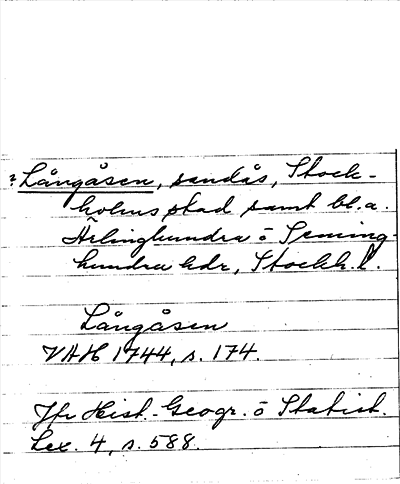 ? Långåsen, sandås, Stock-
holms stad samt bl.a.
Ärlinghundra o Seming-
hundra hdr, Stockh. l.
Långåsen
VAH 1744, s. 174.
Jfr Hist.-Geogr. o Statist.
Lex. 4, s. 588.